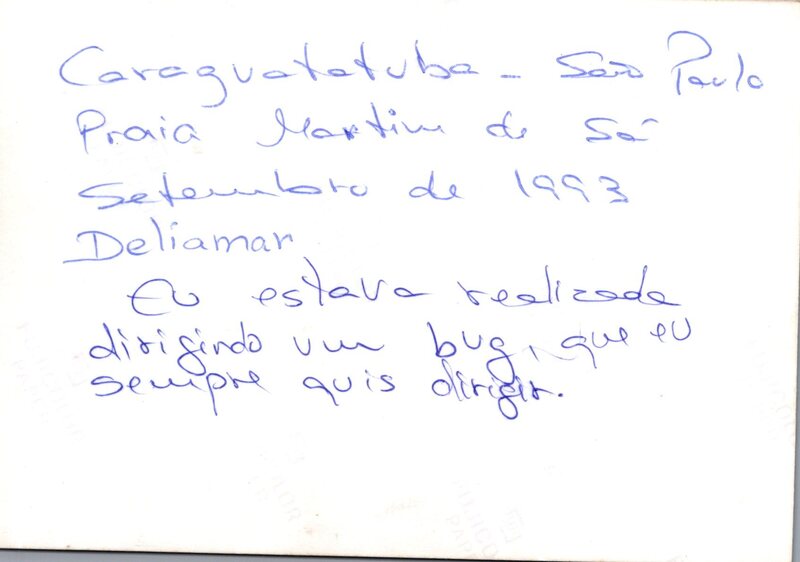 Caraguatatuba - São Paulo
Praia Martim de Sá
Setembro de 1993
Deliamar
Eu estava realizada
dirigindo um bug, que eu
sempre quis dirigir.